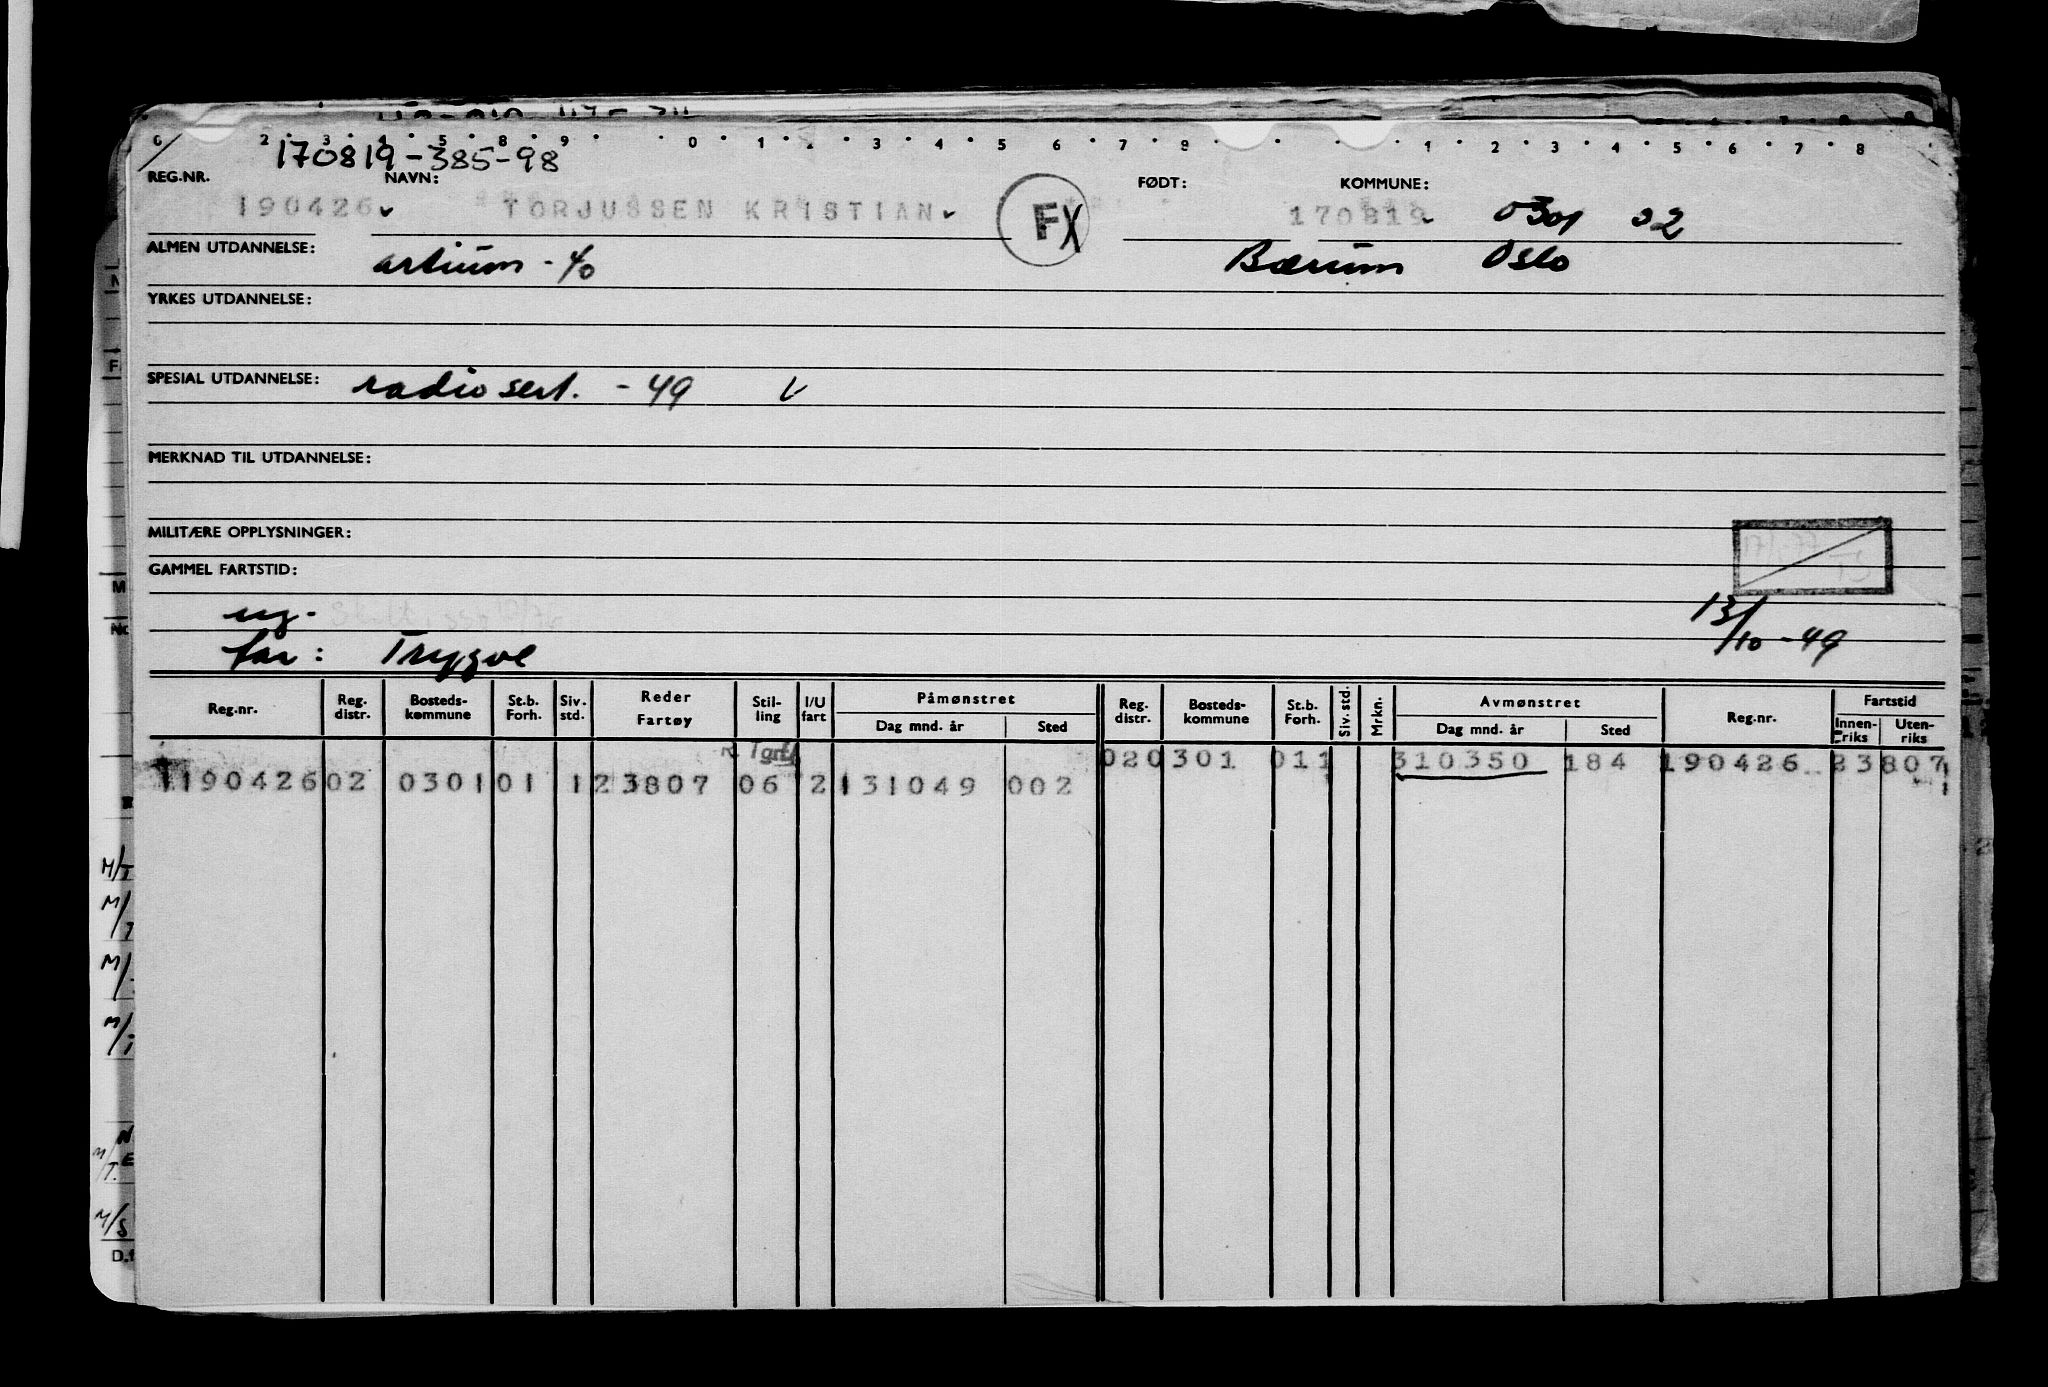 170819-385-98
REG.NR. NAVN: FØDT: KOMMUNE:
190426 TORJUSSEN KRISTIAN FX 170819 0301 02
ALMEN UTDANNELSE: artium - 40 Bærum Oslo
YRKES UTDANNELSE:
SPESIAL UTDANNELSE: radiosert. - 49 V
MERKNAD TIL UTDANNELSE:
MILITÆRE OPPLYSNINGER:
GAMMEL FARTSTID:
ug.
13/10 - 49
far: Trygve
Reg.nr. Reg. distr. Bosteds-kommune St.b. Forh. Siv. std. Reder Fartøy Stil-ling I/U fart Påmønstret Dag mnd. år Sted Reg. distr. Bosteds-kommune St.b. Forh. Siv. std. Mrkn. Avmønstret Dag mnd. år Sted Reg.nr. Fartstid Innen-riks Uten-riks
020301 011 310350 184 190426 23807
119042602 030101 123807 06 2 131049 002